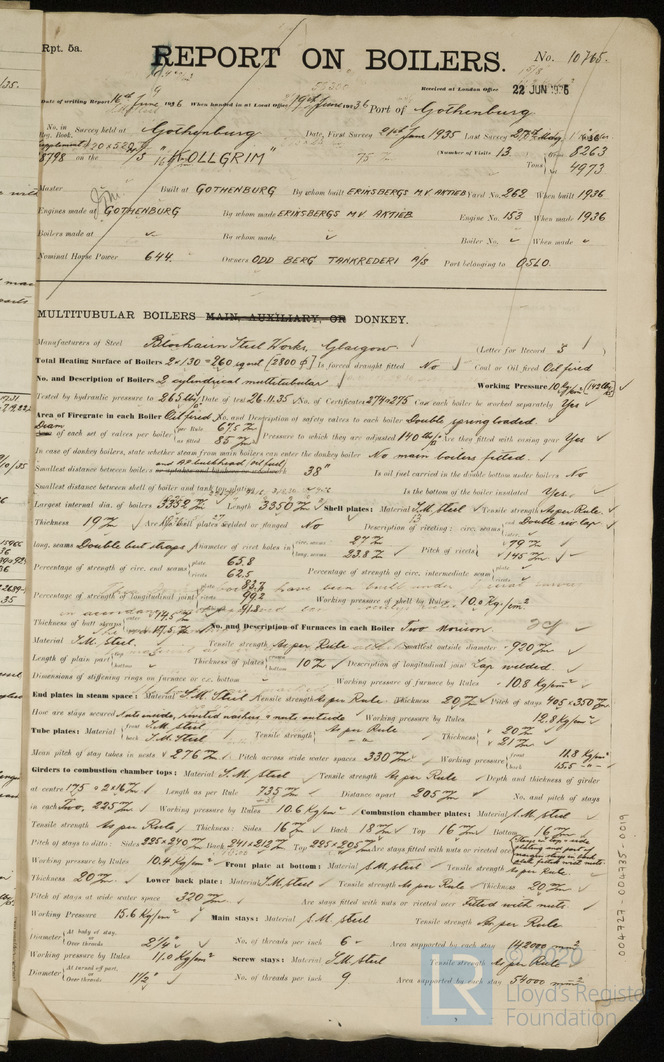 Rpt. 5a.
REPORT ON BOILERS.
No. 10765.
Received at London Office 22 JUN 1936
Date of writing Report 16th June 1936 When handed in at Local Office 19th June 1936 Port of Gothenburg
No. in Reg. Book. Survey held at Gothenburg Date, First Survey 21st June 1935 Last Survey 27th May 1936
8798 on the M/S "KOLLGRIM" (Number of Visits 13 Gross 8263
Tons Net 4973
Master Built at GOTHENBURG By whom built ERIKSBERGS M.V. AKTIEB Yard No. 262 When built 1936
Engines made at GOTHENBURG By whom made ERIKSBERGS M.V. AKTIEB Engine No. 153 When made 1936
Boilers made at By whom made Boiler No. When made
Nominal Horse Power 644. Owners ODD BERG TANKREDERI A/S Port belonging to OSLO.
MULTITUBULAR BOILERS MAIN, AUXILIARY, OR DONKEY.
Manufacturers of Steel Blochairn Steel Works, Glasgow (Letter for Record S)
Total Heating Surface of Boilers 2×130 = 260 sq mt (2800 Is forced draught fitted No Coal or Oil fired Oil fired
No. and Description of Boilers 2 cylindrical multitubular Working Pressure 10 kg/cm² (142 lbs
Tested by hydraulic pressure to 265 lbs Date of test 26.11.35 No. of Certificate 274 & 275 Can each boiler be worked separately Yes
Area of Firegrate in each Boiler Oil fired No. and Description of safety valves to each boiler Double spring loaded.
Diam of each set of valves per boiler per Rule 67.5 as fitted 85 Pressure to which they are adjusted 140 lbs Are they fitted with easing gear Yes
In case of donkey boilers, state whether steam from main boilers can enter the donkey boiler No main boilers fitted.
Smallest distance between boilers and AP bulkhead, oil fuel 38" Is oil fuel carried in the double bottom under boilers No
Smallest distance between shell of boiler and tank top plating Is the bottom of the boiler insulated Yes
Largest internal dia. of boilers 3352 Length 3350 Shell plates: Material S.M. Steel Tensile strength As per Rule
Thickness 19 Are the shell plates welded or flanged No Description of riveting: circ. seams end Double riv lap
long. seams Double butt straps Diameter of rivet holes in circ. seams 27 long. seams 23.8 Pitch of rivets 79 145
Percentage of strength of circ. end seams plate 65.8 rivets 62.5 Percentage of strength of circ. intermediate seam plate rivets
Percentage of strength of longitudinal joint plate 83.7 rivets 99.2 combined 91.8 Working pressure of shell by Rules 10.0 Kg/cm²
Thickness of butt straps outer 14.5 inner 17.5 No. and Description of Furnaces in each Boiler Two Morison.
Material S.M. Steel. Tensile strength As per Rule Smallest outside diameter 920
Length of plain part top bottom Thickness of plates crown bottom 10 Description of longitudinal joint Lap welded.
Dimensions of stiffening rings on furnace or c.c. bottom Working pressure of furnace by Rules 10.8 Kg/cm²
End plates in steam space: Material S.M. Steel Tensile strength As per Rule Thickness 20 Pitch of stays 405 × 350
How are stays secured Nuts inside, riveted washers & nuts outside Working pressure by Rules 12.8 Kg/cm²
Tube plates: Material front S.M. Steel back S.M. Steel Tensile strength As per Rule Thickness 20 21
Mean pitch of stay tubes in nests 276 Pitch across wide water spaces 330 Working pressure front 11.8 Kg/cm² back 15.5
Girders to combustion chamber tops: Material S.M. Steel Tensile strength As per Rule Depth and thickness of girder
at centre 175 × 2×16 Length as per Rule 735 Distance apart 205 No. and pitch of stays
in each Two, 225 Working pressure by Rules 10.6 Kg/cm² Combustion chamber plates: Material S.M. Steel
Tensile strength As per Rule Thickness: Sides 16 Back 18 Top 16 Bottom 16
Pitch of stays to ditto: Sides 225 × 240 Back 241 × 212 Top 225 × 205 Are stays fitted with nuts or riveted over
Working pressure by Rules 10.4 Kg/cm² Front plate at bottom: Material S.M. Steel Tensile strength As per Rule
Thickness 20 Lower back plate: Material S.M. Steel Tensile strength As per Rule Thickness 20
Pitch of stays at wide water space 320 Are stays fitted with nuts or riveted over Fitted with nuts.
Working Pressure 15.6 Kg/cm² Main stays: Material S.M. Steel Tensile strength As per Rule
Diameter At body of stay, or Over threads 2¼" No. of threads per inch 6 Area supported by each stay 142000 mm²
Working pressure by Rules 11.0 Kg/cm² Screw stays: Material S.M. Steel Tensile strength As per Rule
Diameter At turned off part, or Over threads 1½" No. of threads per inch 9 Area supported by each stay 54000 mm²
004727-004735-0019
© 2020
LR
Lloyd's Register
Foundation